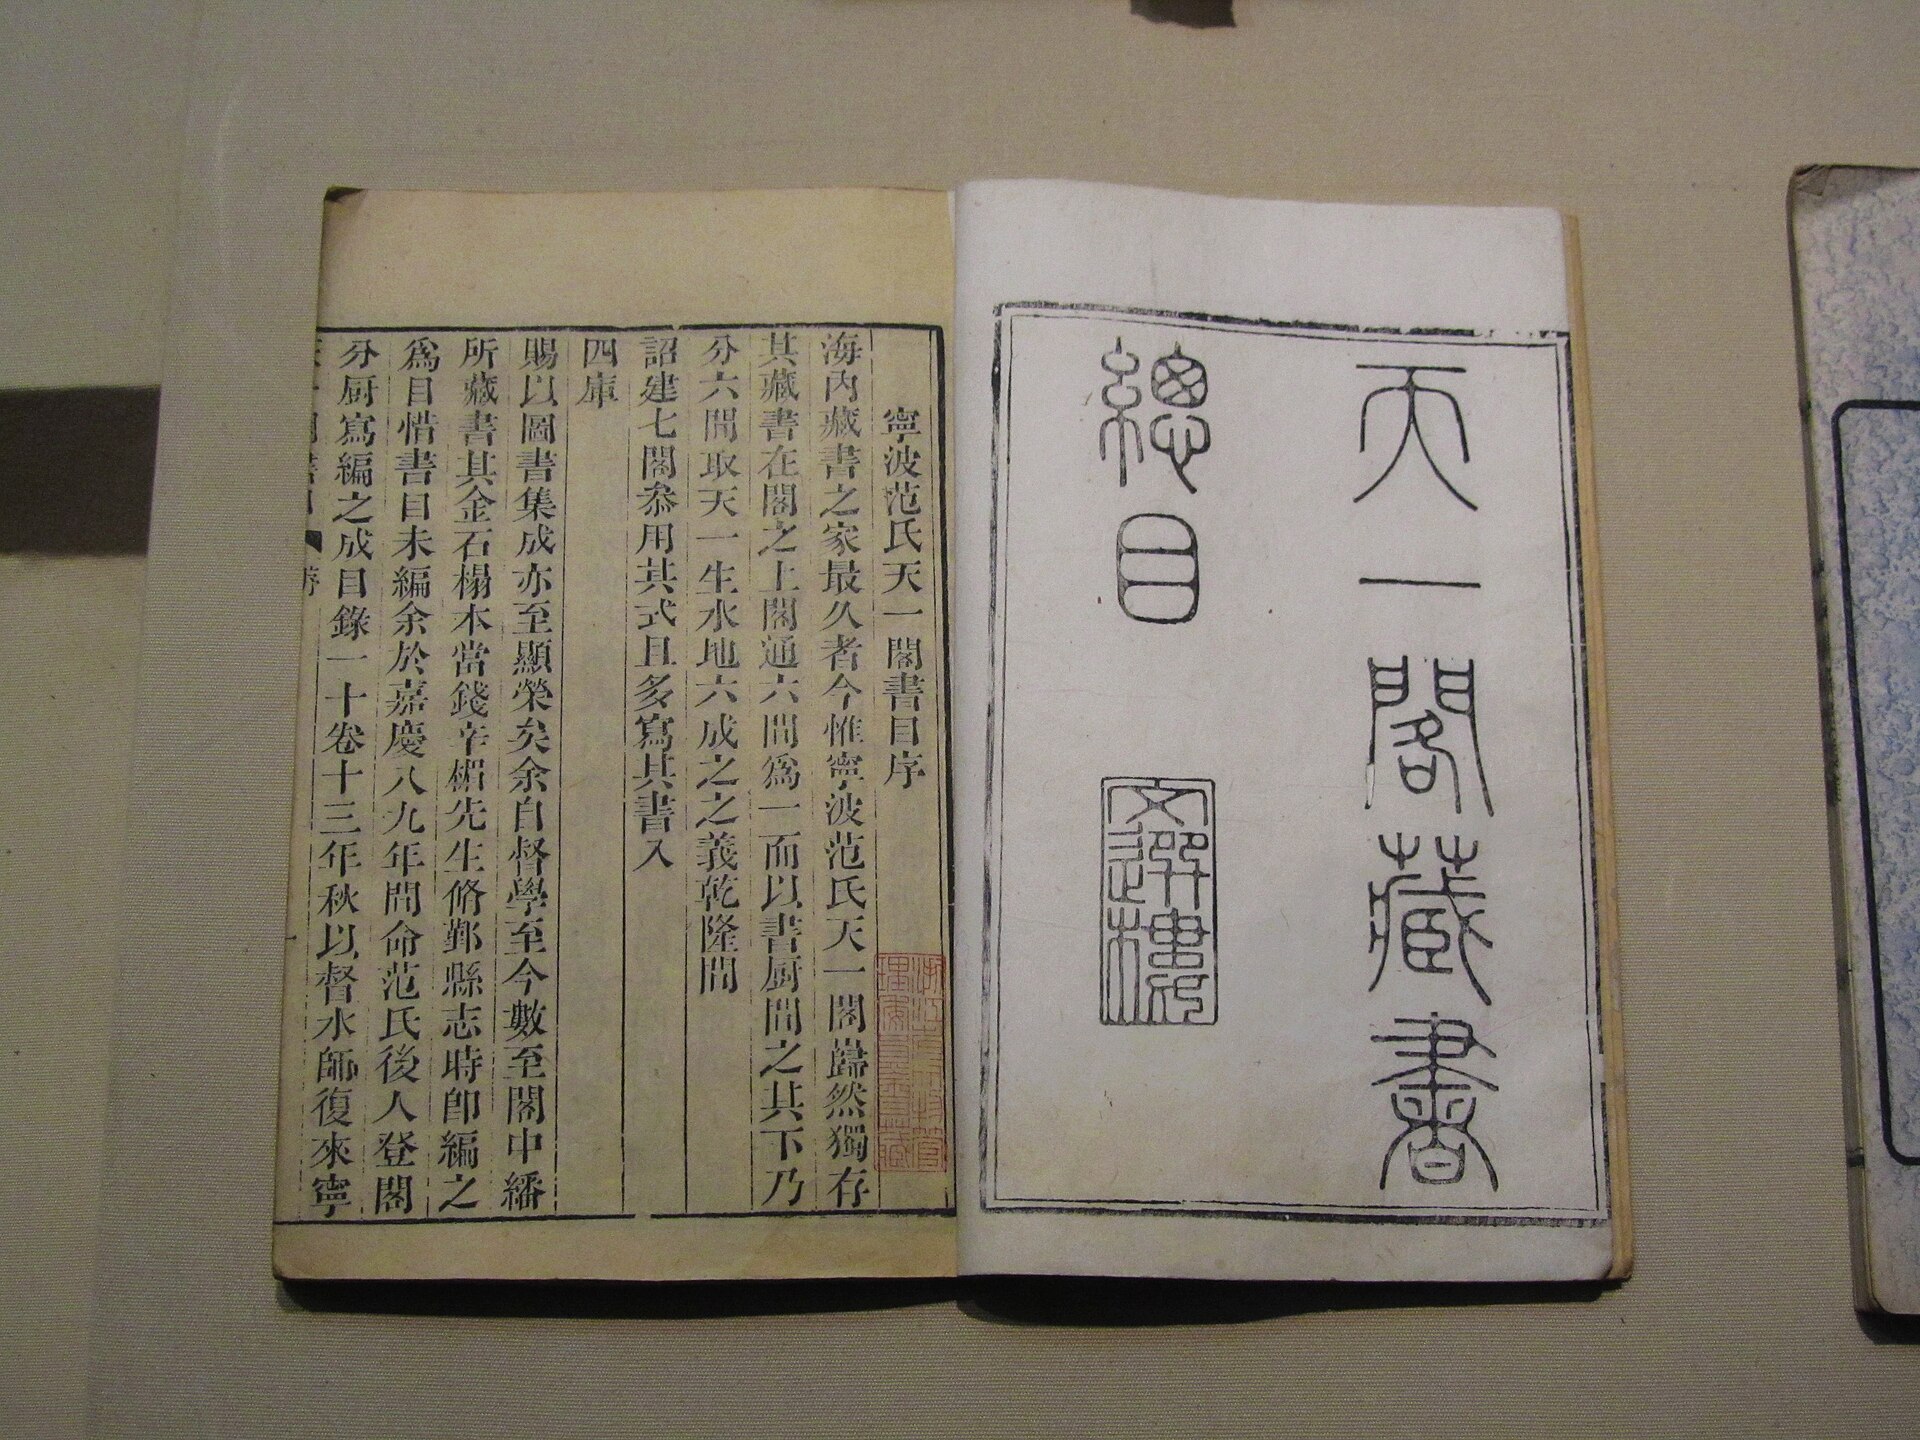 天一閣藏書
總目
文選樓
寧波范氏天一閣書目序
海內藏書之家最久者今惟寧波范氏天一閣巋然獨存
其藏書在閣之上閣通六間爲一而以書厨間之其下乃
分六間取天一生水地六成之之義乾隆間
詔建七閣叅用其式且多寫其書入
四庫
賜以圖書集成亦至顯榮矣余自督學至今數至閣中繙
所藏書其金石榻本當錢辛楣先生脩鄞縣志時卽編之
爲目惜書目未編余於嘉慶八九年間命范氏後人登閣
分厨寫編之成目錄一十卷十三年秋以督水師復來寧